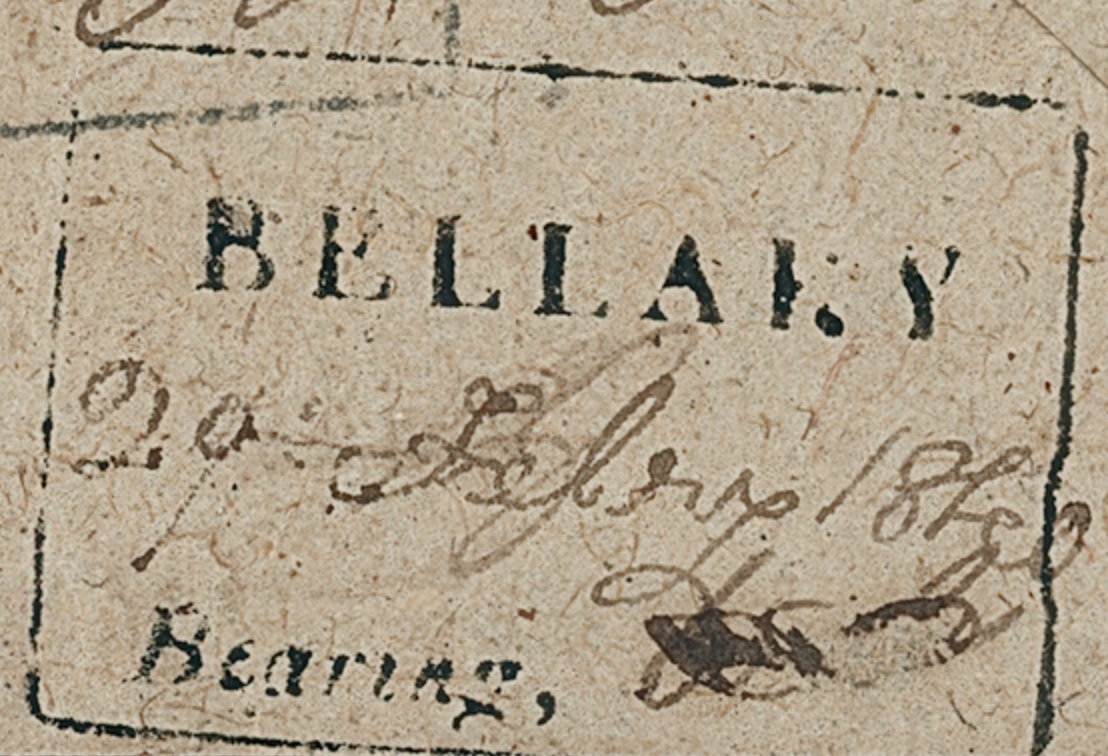 BELLARY
29 Febry 1860
Bearing,